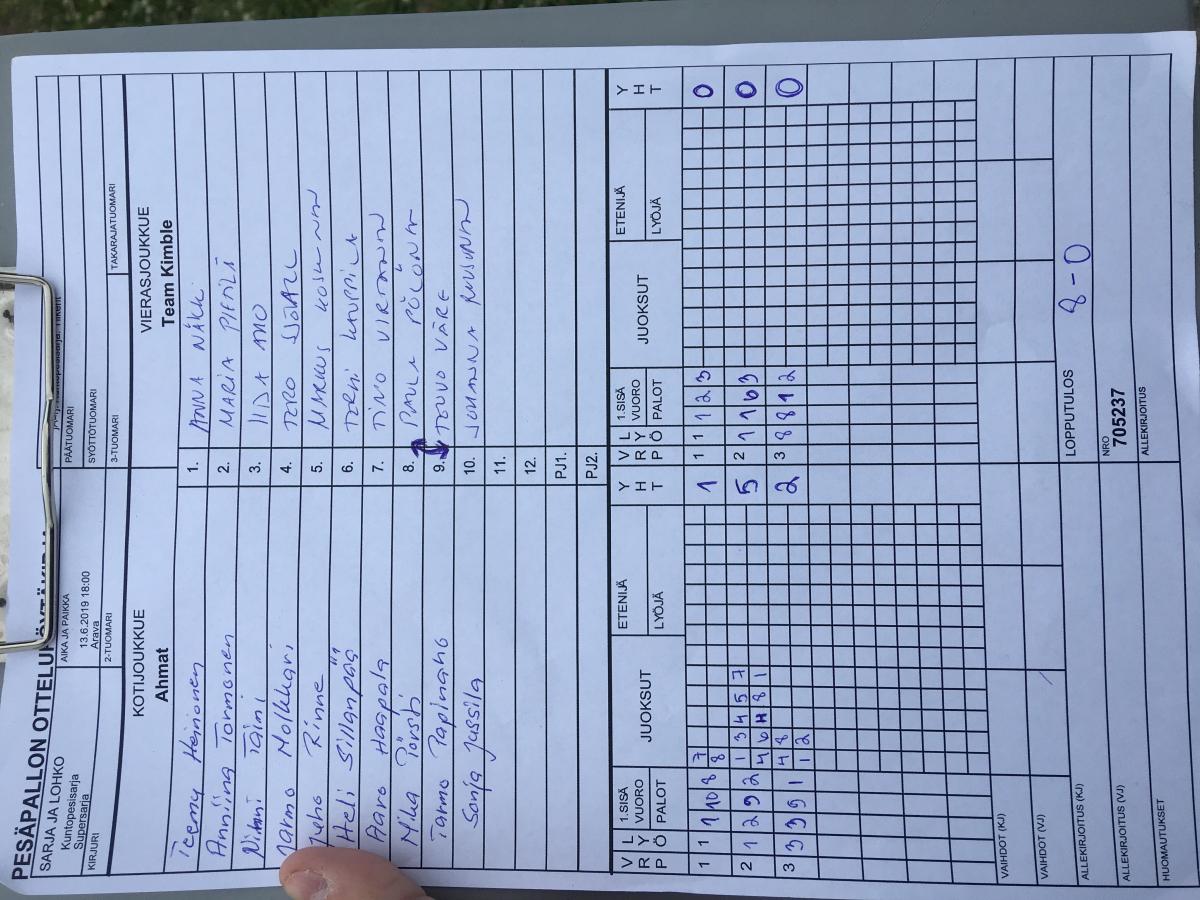 PESÄPALLON OTTELUPÖYTÄKIRJA
SARJA JA LOHKO
Kuntopesisarja
Supersarja
KIRJURI
AIKA JA PAIKKA
13.6.2019 18:00
Arava
2-TUOMARI
PÄÄTUOMARI
SYÖTTÖTUOMARI
3-TUOMARI
TAKARAJATUOMARI
KOTIJOUKKUE
Ahmat
VIERASJOUKKUE
Team Kimble
Teemu Heinonen 1. ANNA NÄKKI
Anniina Tormonen 2. MARIA PIETILÄ
Ninni Taimi 3. IIDA AHO
Jarmo Molkkari 4.
Juho Rinne 5. MARKUS KOSUNEN
Heli Sillanpää 6. TONI KAUPPILA
Aaro Haapala 7. TIMO VIRTANEN
Mika Pörsti 8. PAULA PÖLÖNEN
Tarmo Papinaho 9. TOUVO VÄRE
Sonja Jussila 10. JOHANNA RUUSUNEN
11.
12.
PJ1.
PJ2.
VRP LYÖ 1.SISÄ VUORO PALOT JUOKSUT ETENIJÄ LYÖJÄ YHT VRP LYÖ 1.SISÄ VUORO PALOT JUOKSUT ETENIJÄ LYÖJÄ YHT
1 1 1 10 8 7 8 1 1 1 1 2 3 0
2 1 2 9 2 1 3 4 5 7 5 2 1 1 6 3 0
4 6 H 8 1
3 3 9 9 1 4 8 2 3 8 8 1 2 0
1 2
VAIHDOT (KJ)
VAIHDOT (VJ)
ALLEKIRJOITUS (KJ)
LOPPUTULOS
8 - 0
ALLEKIRJOITUS (VJ)
NRO
705237
HUOMAUTUKSET
ALLEKIRJOITUS